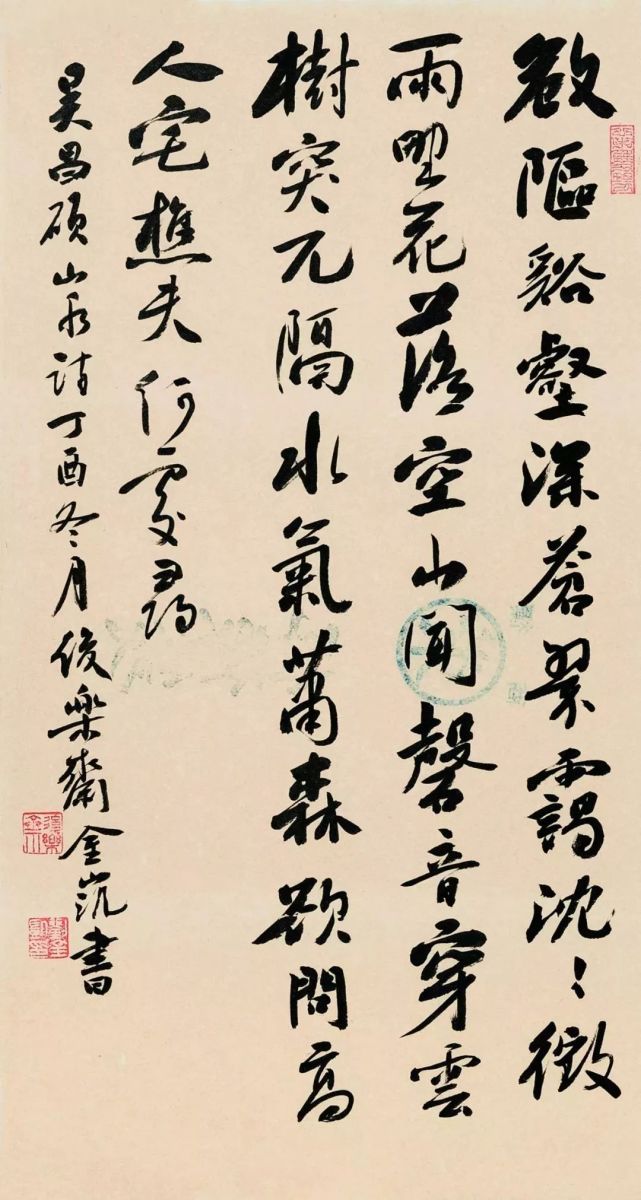 敧嶇谿壑深蒼翠靄沈〻微
雨野花落空山聞磬音穿雲
樹突兀隔水氣蕭森欲問高
人宅樵夫何處尋
吴昌碩山水詩丁酉冬月後樂齋金書